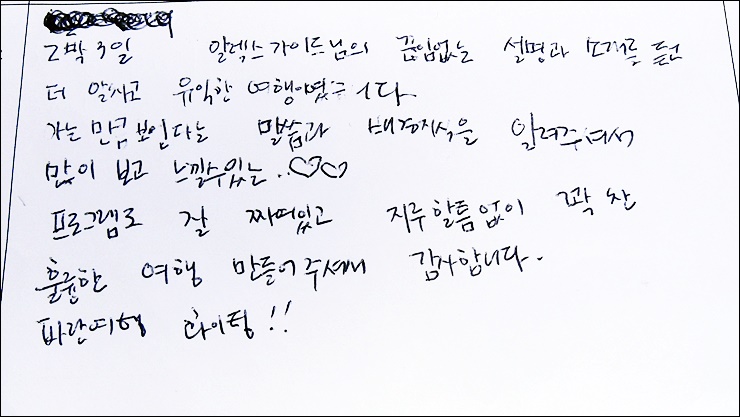 2박 3일 알렉스가이드님의 끊임없는 설명과 노래를 듣고
더 알차고 유익한 여행이였습니다
가는 만큼 보인다는 말씀과 배경지식을 알려주셔서
많이 보고 느낄수있는..♡♡
프로그램도 잘 짜여있고 지루할틈없이 꽉 찬
훌륭한 여행 만들어주셔서 감사합니다.
파란여행 화이팅!!